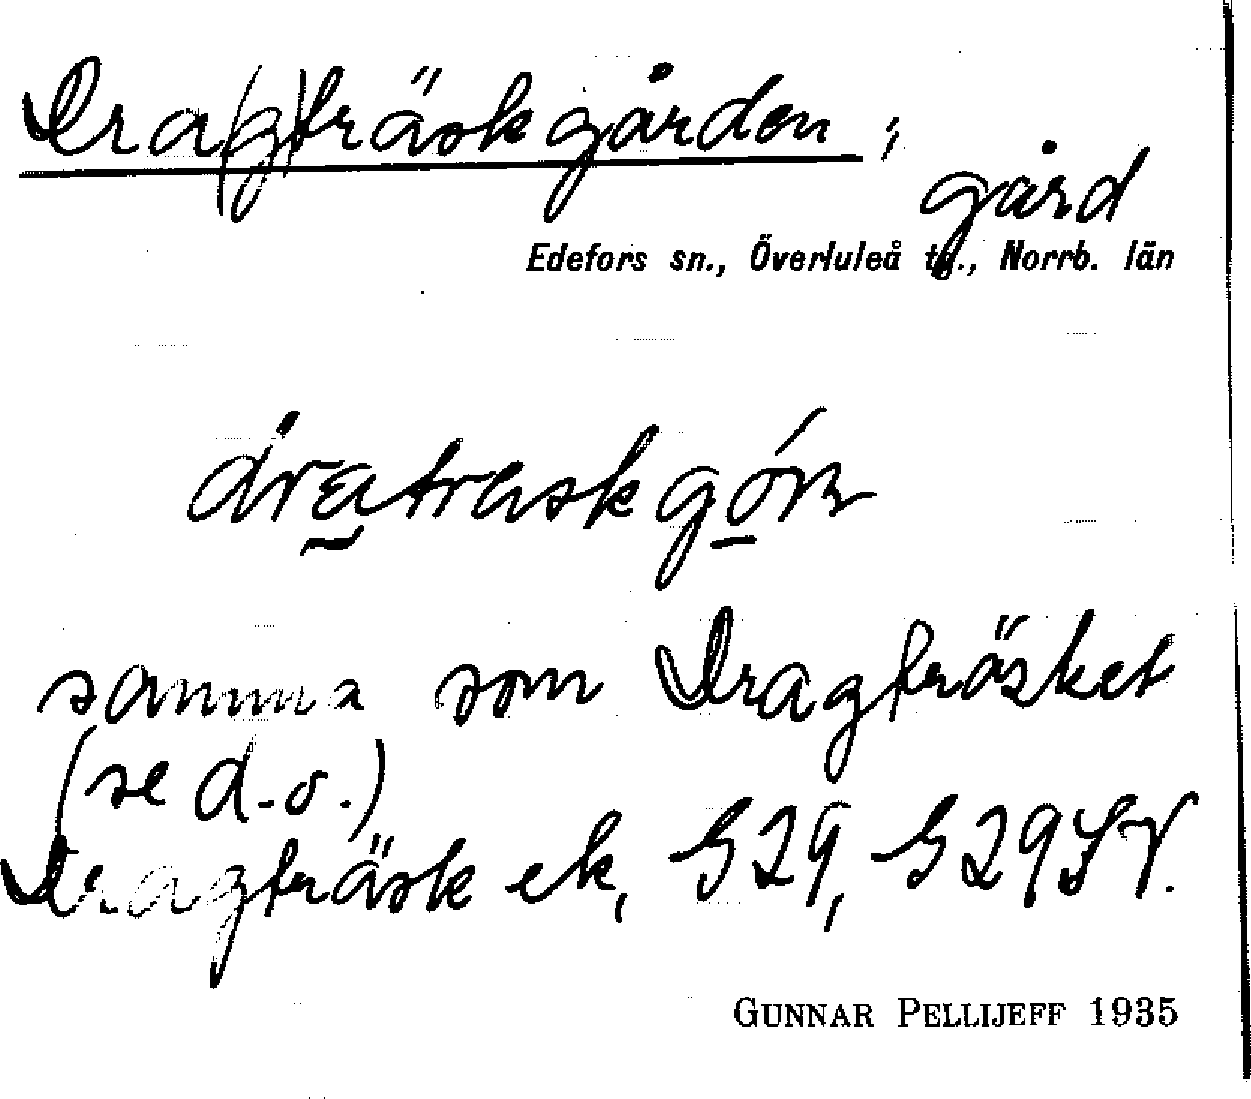 Dra(g)träskgården,
gård
Edefors sn., Överluleå tg., Norrb. län
samma som Dragträsket
(se d.o.)
Dragträsk ek, G29, G29SV.
GUNNAR PELLIJEFF 1935